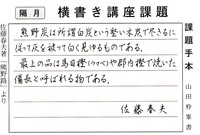 隔月
横書き講座課題
熊野炭は所謂白炭という堅い木炭で尽きるに
従って灰を被って白く見ゆるものである。
最上の品は馬目樫(うべ)や郡内樫で焼いた
備長と呼ばれる物である。
佐藤春夫
課題手本
山田幹峯書
佐藤春夫著「熊野路」より